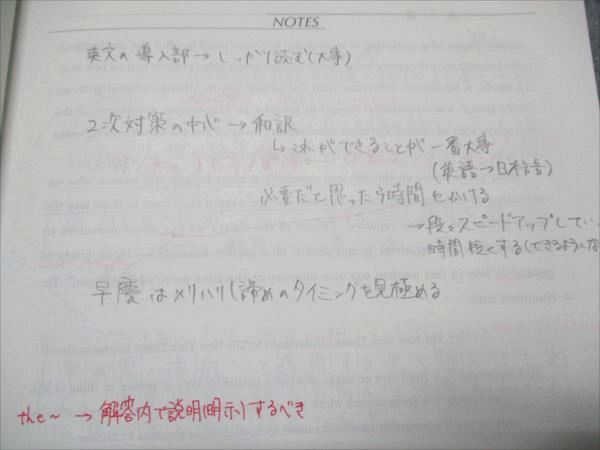 NOTES
英文の導入部→しっかり読む(大事)
2次対策のキバ→和訳
↳これができることが一番大事
(英語→日本語)
必要だと思ったら時間をかける
→段々スピードアップしてい
時間短くする(できるようにな
早慶はメリハリ(諦めのタイミングを見極める
the~→解答内で説明(明示)するべき